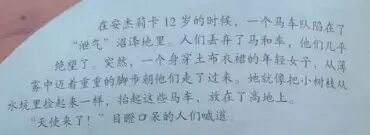 在安杰莉卡 12 岁的时候，一个马车队陷在了
“泄气”沼泽地里。人们丢弃了马和车，他们几乎
绝望了。突然，一个身穿土布衣裙的年轻女子，从薄
雾中迈着重重的脚步朝他们走了过来。她就像把小树枝从
水坑里捡起来一样，抬起这些马车，放在了高地上。
“天使来了！”目瞪口呆的人们喊道。